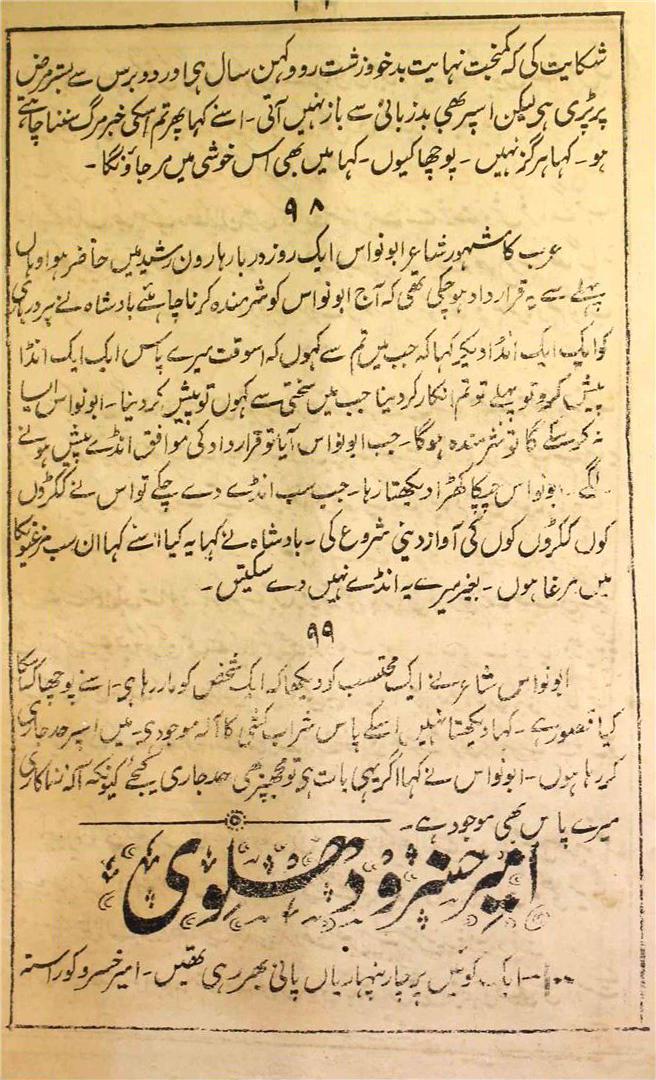 شکایت کی کہ کمبخت نہایت بدخو وزشت رو و کہن سال ہی اور دو برس سے بستر مرض
پر پڑی ہی لیکن اسپر بھی بدزبانی سے باز نہیں آتی۔ اسنے کہا پھر تم اسکی خبر مرگ سننا چاہتے
ہو۔ کہا ہرگز نہیں۔ پوچھا کیوں۔ کہا میں بھی اس خوشی میں مرجاؤنگا۔
۹۸
عرب کا مشہور شاعر ابونواس ایک روز دربار ہارون رشید میں حاضر ہوا وہاں
پہلے سے یہ قرار داد ہوچکی تھی کہ آج ابونواس کو شرمندہ کرنا چاہئے بادشاہ نے ہر درباری
کو ایک ایک انڈا دیکر کہا کہ جب میں تم سے کہوں کہ اسوقت میرے پاس ایک ایک انڈا
پیش کرو تو پہلے تو تم انکار کردینا جب میں سختی سے کہوں تو پیش کردینا۔ ابونواس ایسا
نہ کرسکے گا تو شرمندہ ہوگا۔ جب ابونواس آیا تو قرارداد کی موافق انڈے پیش ہونے
لگے۔ ابونواس چپکا کھڑا دیکھتا رہا۔ جب سب انڈے دے چکے تو اس نے ککڑوں
کوں ککڑوں کوں کی آواز دینی شروع کی۔ بادشاہ نے کہا یہ کیا اسنے کہا ان سب مرغیونکا
میں مرغا ہوں۔ بغیر میرے یہ انڈے نہیں دے سکتیں۔
۹۹
ابونواس شاعر نے ایک محتسب کو دیکھا کہ ایک شخص کو مار رہا ہی۔ اسنے پوچھا کہ اسکا
کیا قصور ہے۔ کہا دیکھتا نہیں اسکے پاس شراب کشی کا آلہ موجود ہی۔ میں اسپر حد جاری
کر رہا ہوں۔ ابونواس نے کہا اگر یہی بات ہی تو مجھپر بھی حد جاری کیجئے کیونکہ آلہ زناکاری
میرے پاس بھی موجود ہے۔
امیر خسرو دہلوی
۱۰۰۔ ایک کوئیں پر چار پنہاریاں پانی بھر رہی تھیں۔ امیر خسرو کو راستہ